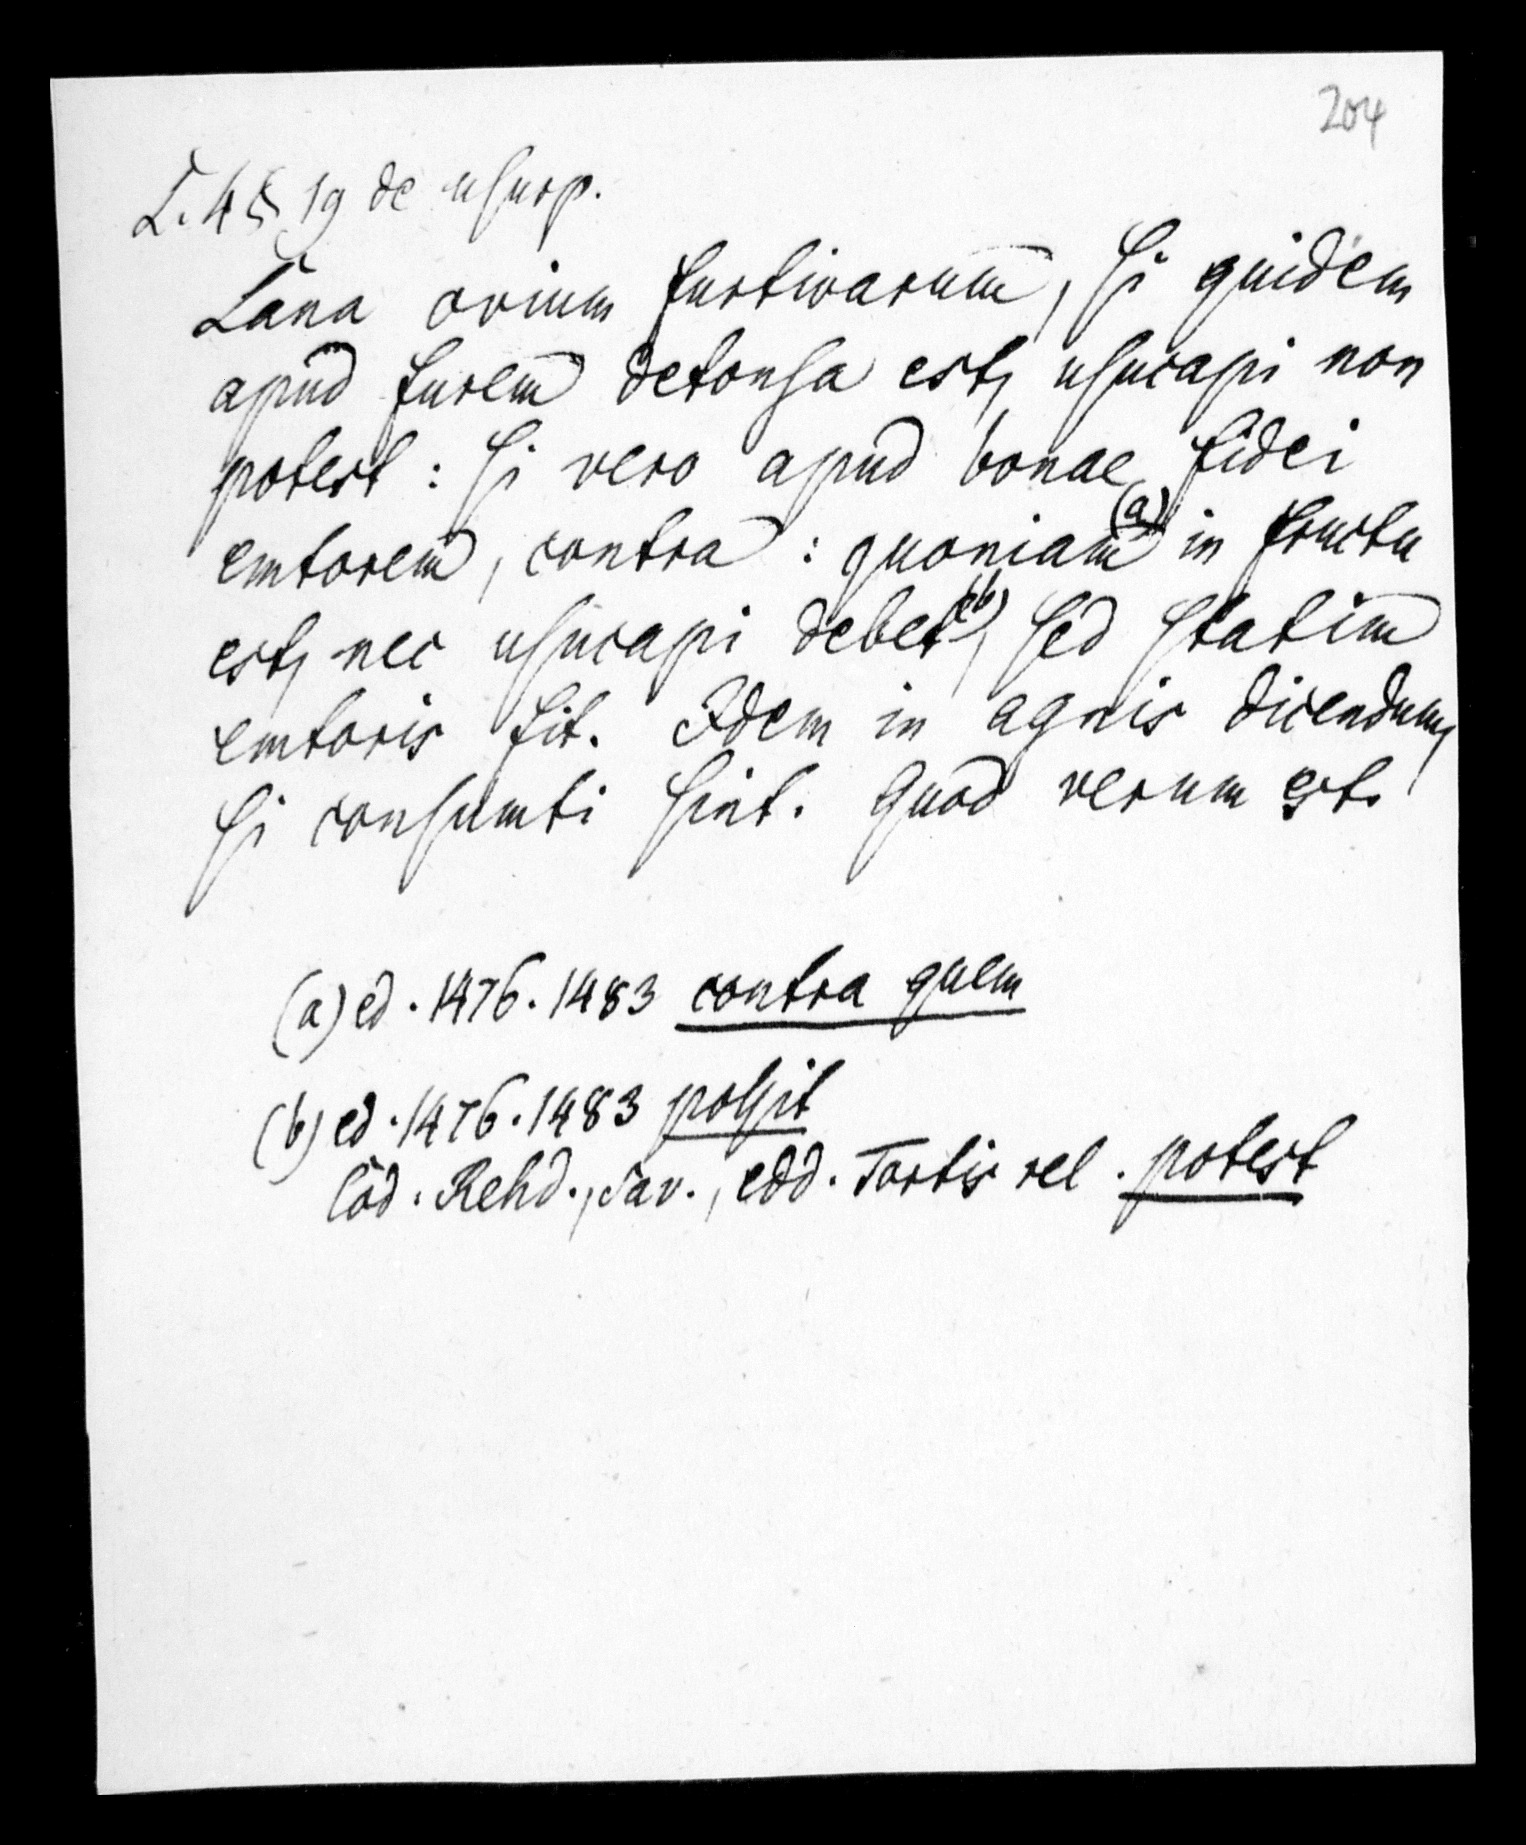 204
L. 4 § 19 de usurp.
Lana ovium furtivarum, si quidem
apud furem detonsa est, usucapi non
potest: si vero apud bonae fidei
emtorem, contra: quoniam (a) in fructu
est, nec usucapi debet (b), sed statim
emtoris fit. Idem in agnis dicendum,
si consumti sint. Quod verum est.
(a) ed. 1476. 1483 contra quem
(b) ed. 1476. 1483 possit
Cod. Rehd., Sav., edd. Tortis rel. potest